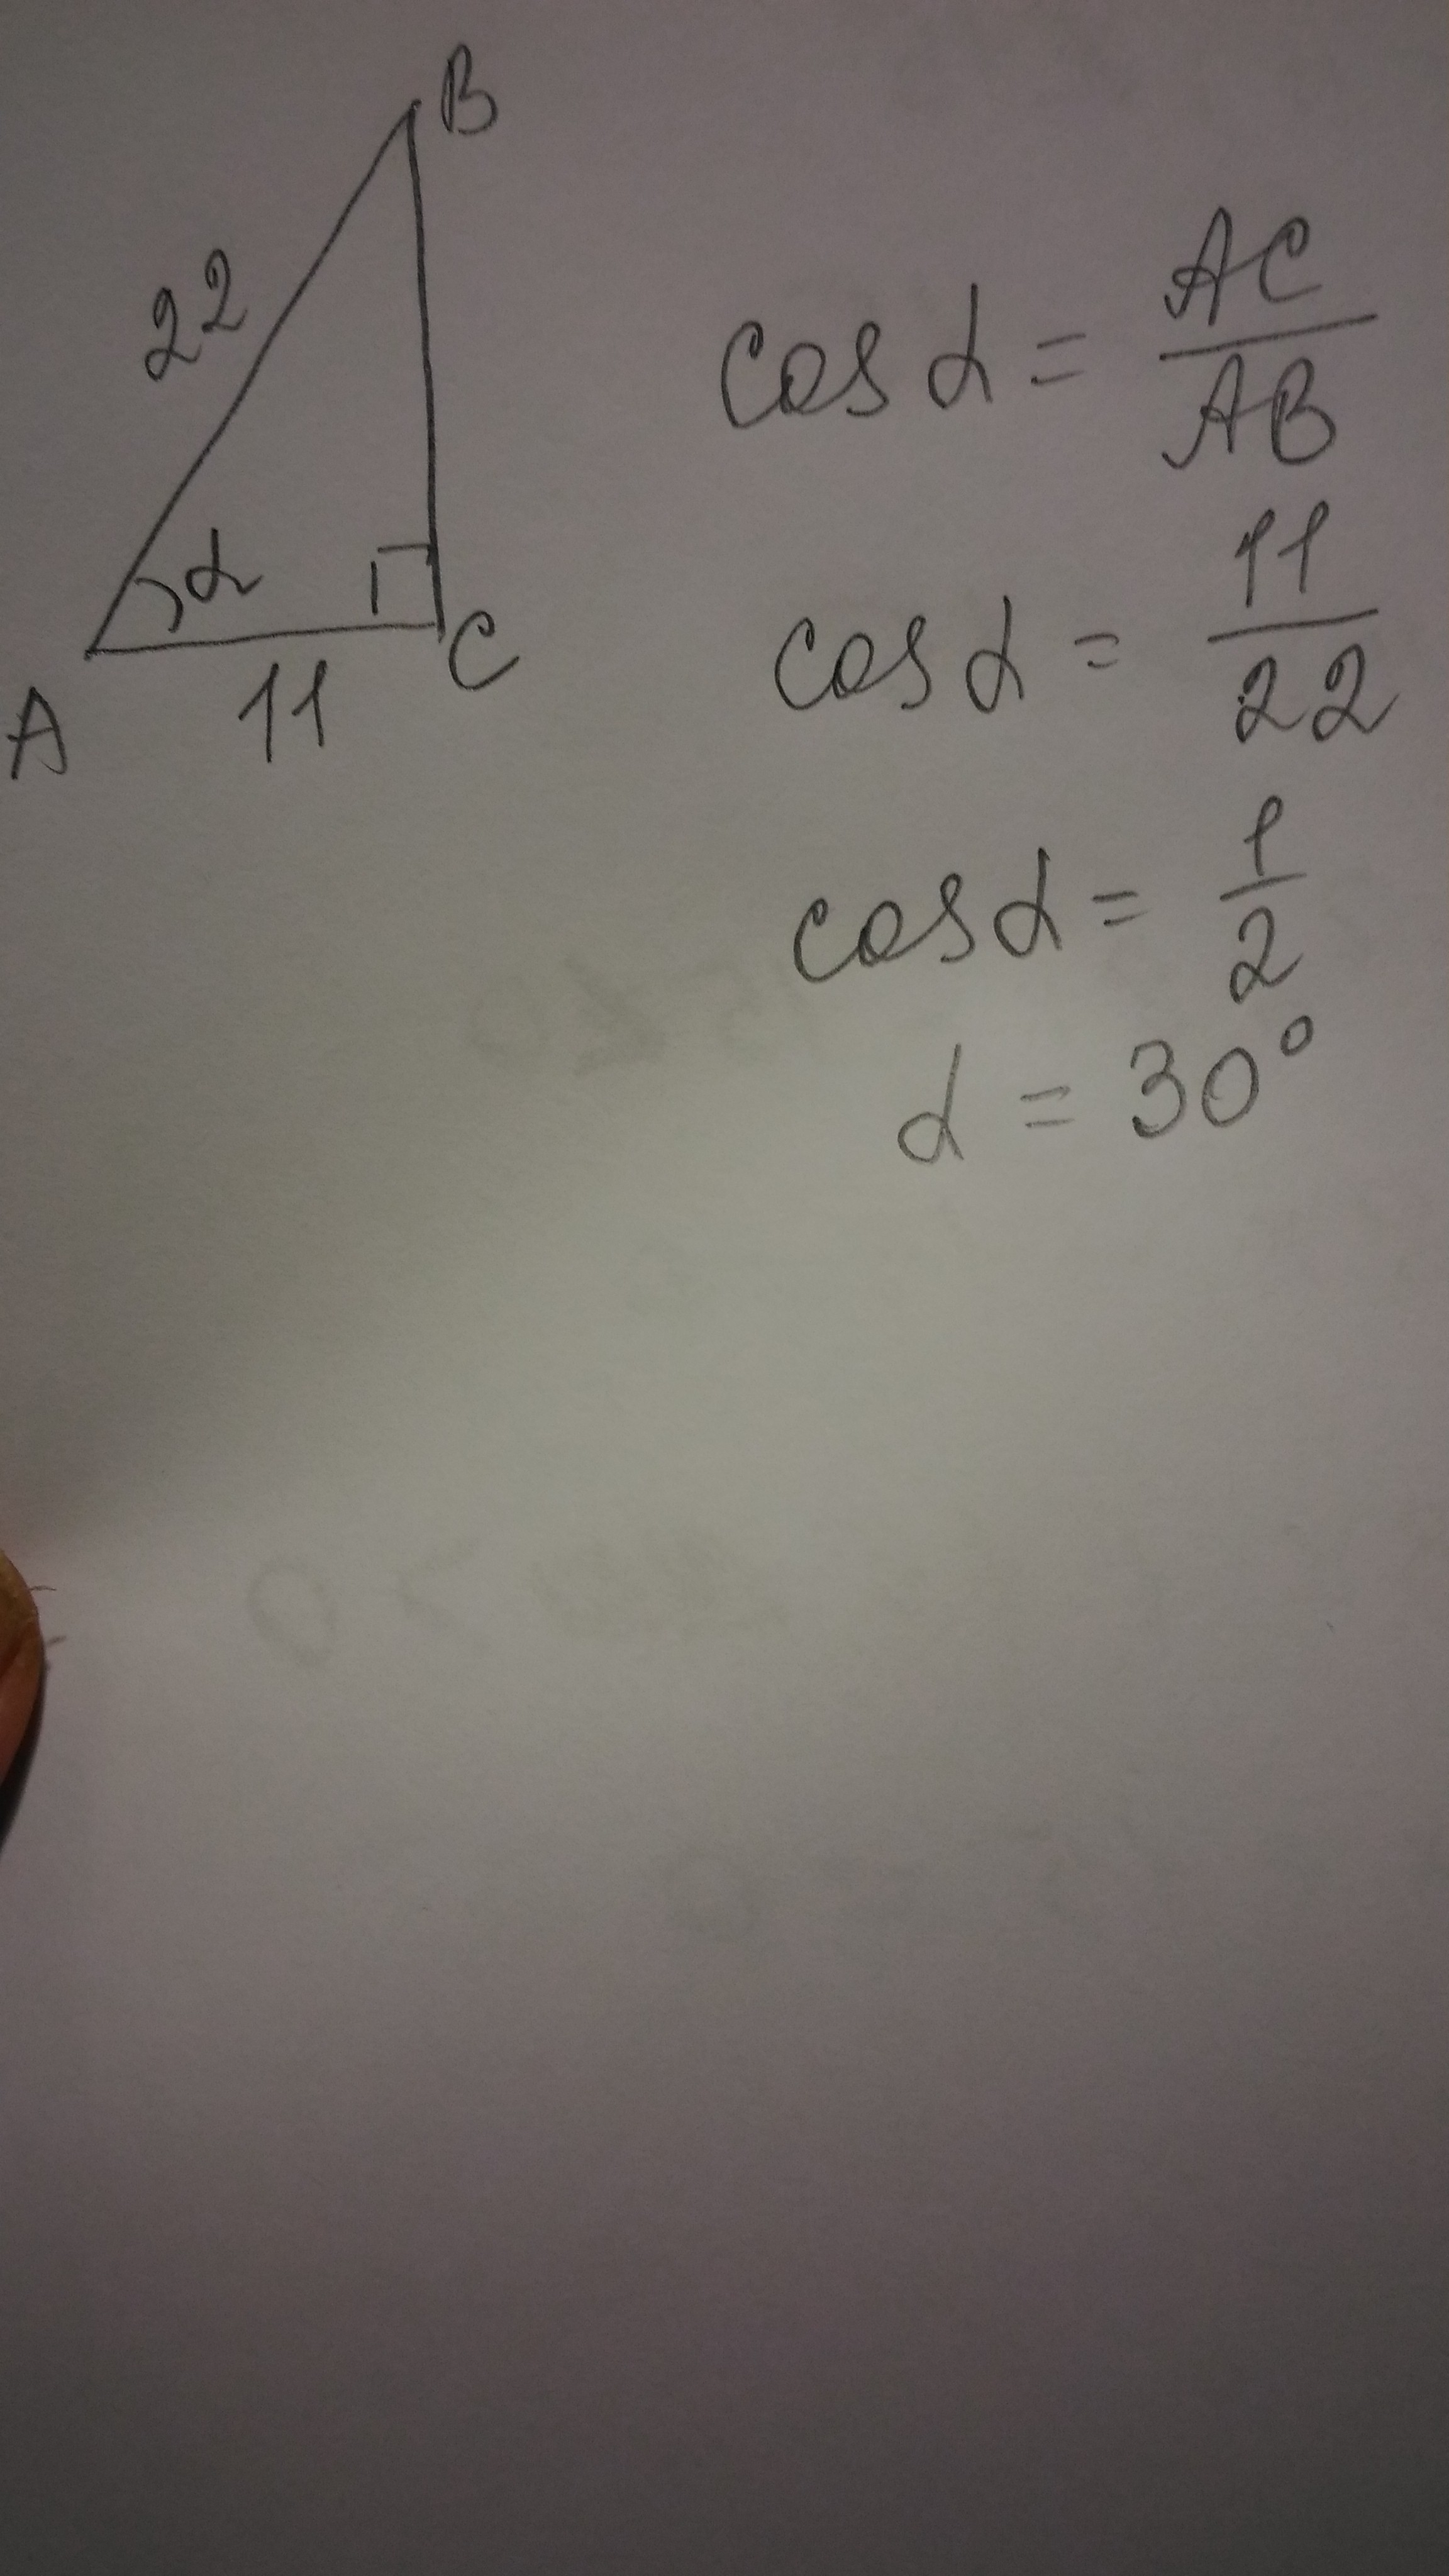 B
22
α
A
11
C
cos α = AC/AB
cos α = 11/22
cos α = 1/2
α = 30°